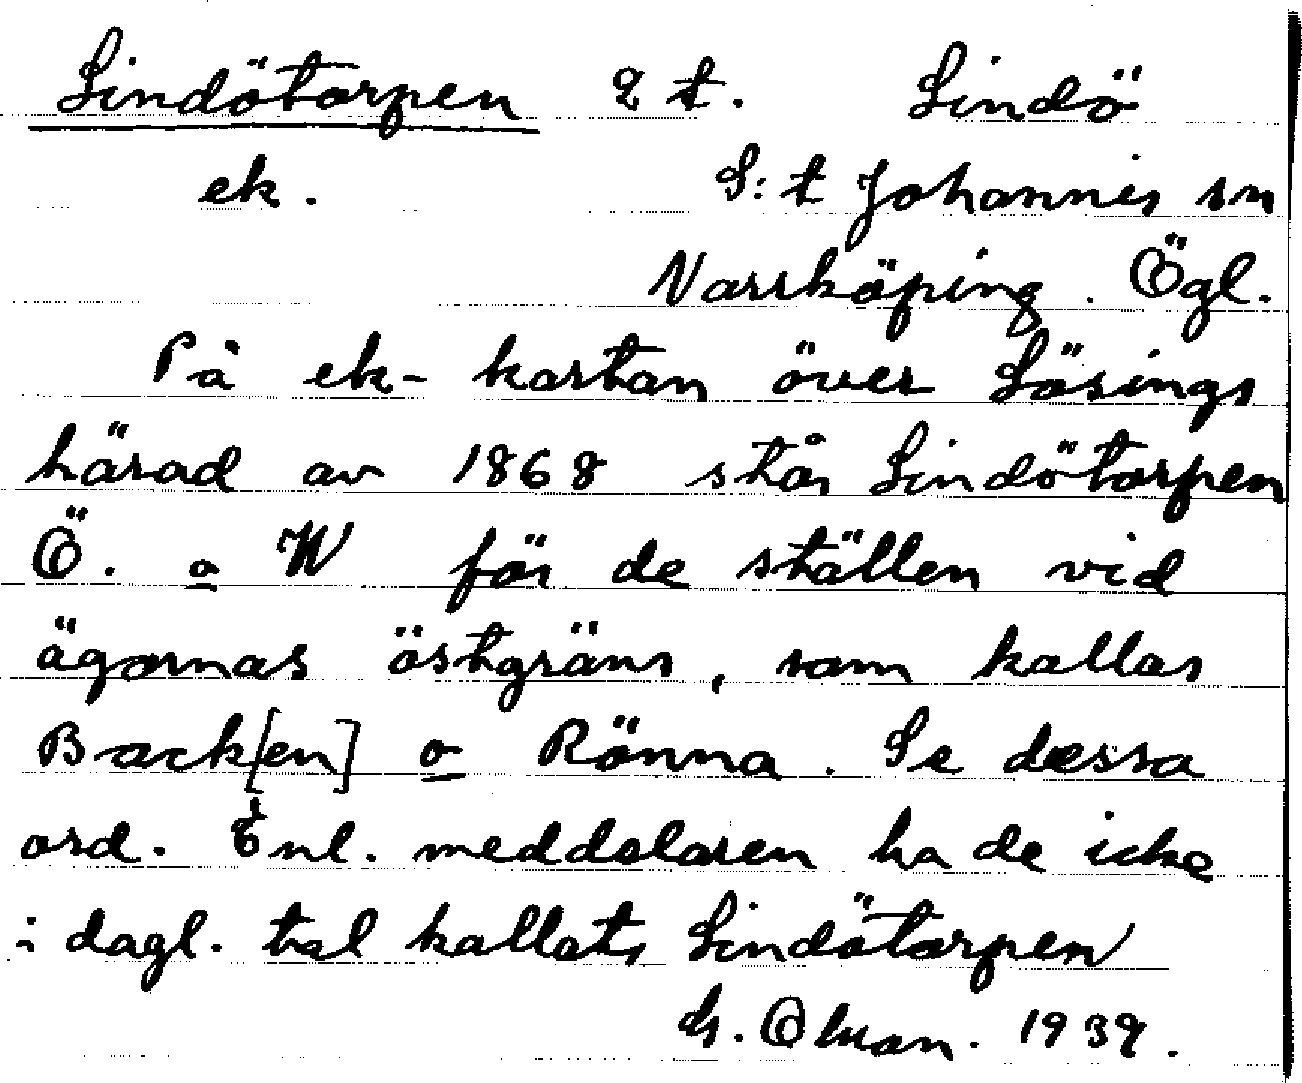 Lindötorpen 2 t. Lindö
ek. S:t Johannis sn
Norrköping. Ögl.
På ek-kartan över Lösings
härad av 1868 står Lindötorpen
Ö. o W för de ställen vid
ägornas östgräns, som kallas
Back[en] o Rönna. Se dessa
ord. Enl. meddelaren ha de icke
i dagl. tal kallats Lindötorpen
1939.